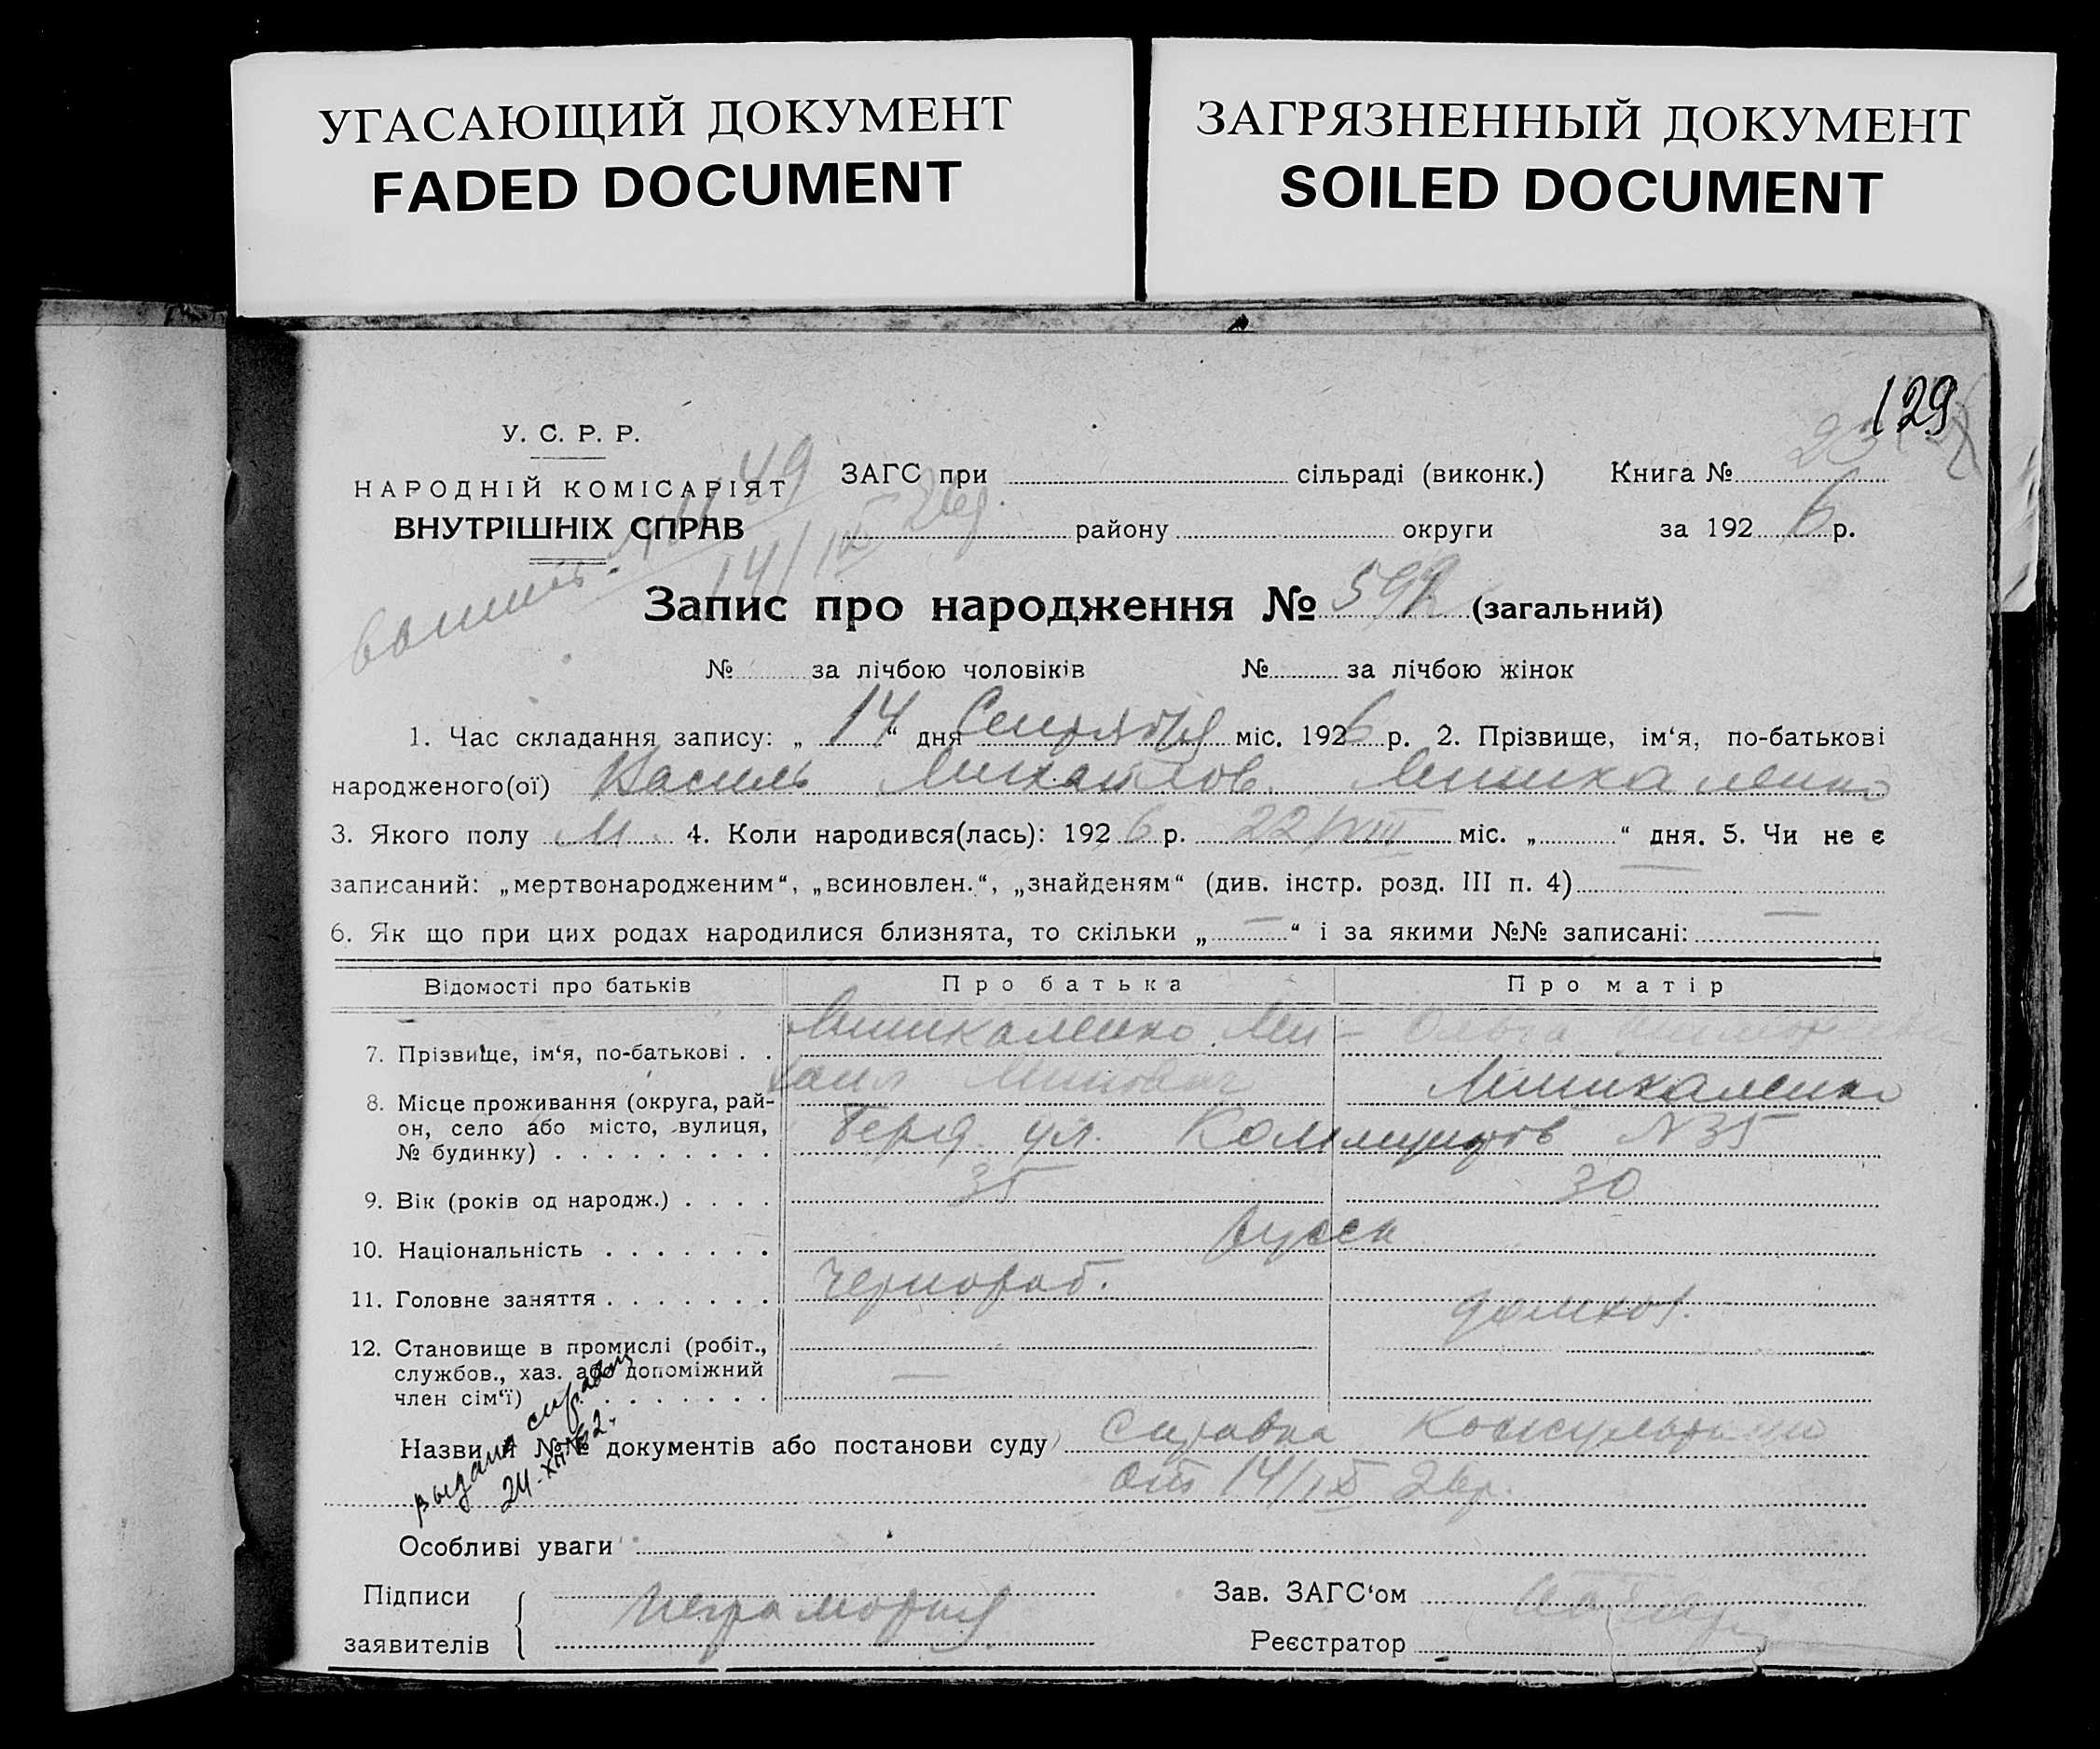 УГАСАЮЩИЙ ДОКУМЕНТ
FADED DOCUMENT
ЗАГРЯЗНЕННЫЙ ДОКУМЕНТ
SOILED DOCUMENT
129
У. С. Р. Р.
НАРОДНІЙ КОМІСАРІЯТ
ВНУТРІШНІХ СПРАВ
49
14/IX 26р.
ЗАГС при сільраді (виконк.) Книга №
району округи за 1926 р.
Запис про народження № 592 (загальний)
№ за лічбою чоловіків № за лічбою жінок
1. Час складання запису: „14“ дня Сентября міс. 1926 р. 2. Прізвище, ім‘я, по-батькові
народженого(ої) Василь Михайлов. Минихаленко
3. Якого полу М. 4. Коли народився(лась): 1926 р. 22/VIII міс. „ “ дня. 5. Чи не є
записаний: „мертвонародженим“, „всиновлен.“, „знайденям“ (див. інстр. розд. III п. 4) —
6. Як що при цих родах народилися близнята, то скільки „—“ і за якими №№ записані: —
Відомості про батьків Про батька Про матір
7. Прізвище, ім‘я, по-батькові . . Ми- Ольга
хаил
8. Місце проживання (округа, рай-
он, село або місто, вулиця,
№ будинку) . . . . . . . . . Берд. ул. Коммунаров N 35
9. Вік (років од народж.) . . . . 35 30
10. Національність . . . . . . . русск
11. Головне заняття . . . . . . . Чернораб. домхоз.
12. Становище в промислі (робіт.,
службов., хаз. або допоміжний
член сім‘ї) . . . . . . . —
выдана справка
24-XII-62.
Назви й №№ документів або постанови суду Справка Консультации
от 14/IX 26р.
Особливі уваги
Підписи
заявителів
Неграмотный
Зав. ЗАГС‘ом
Реєстратор